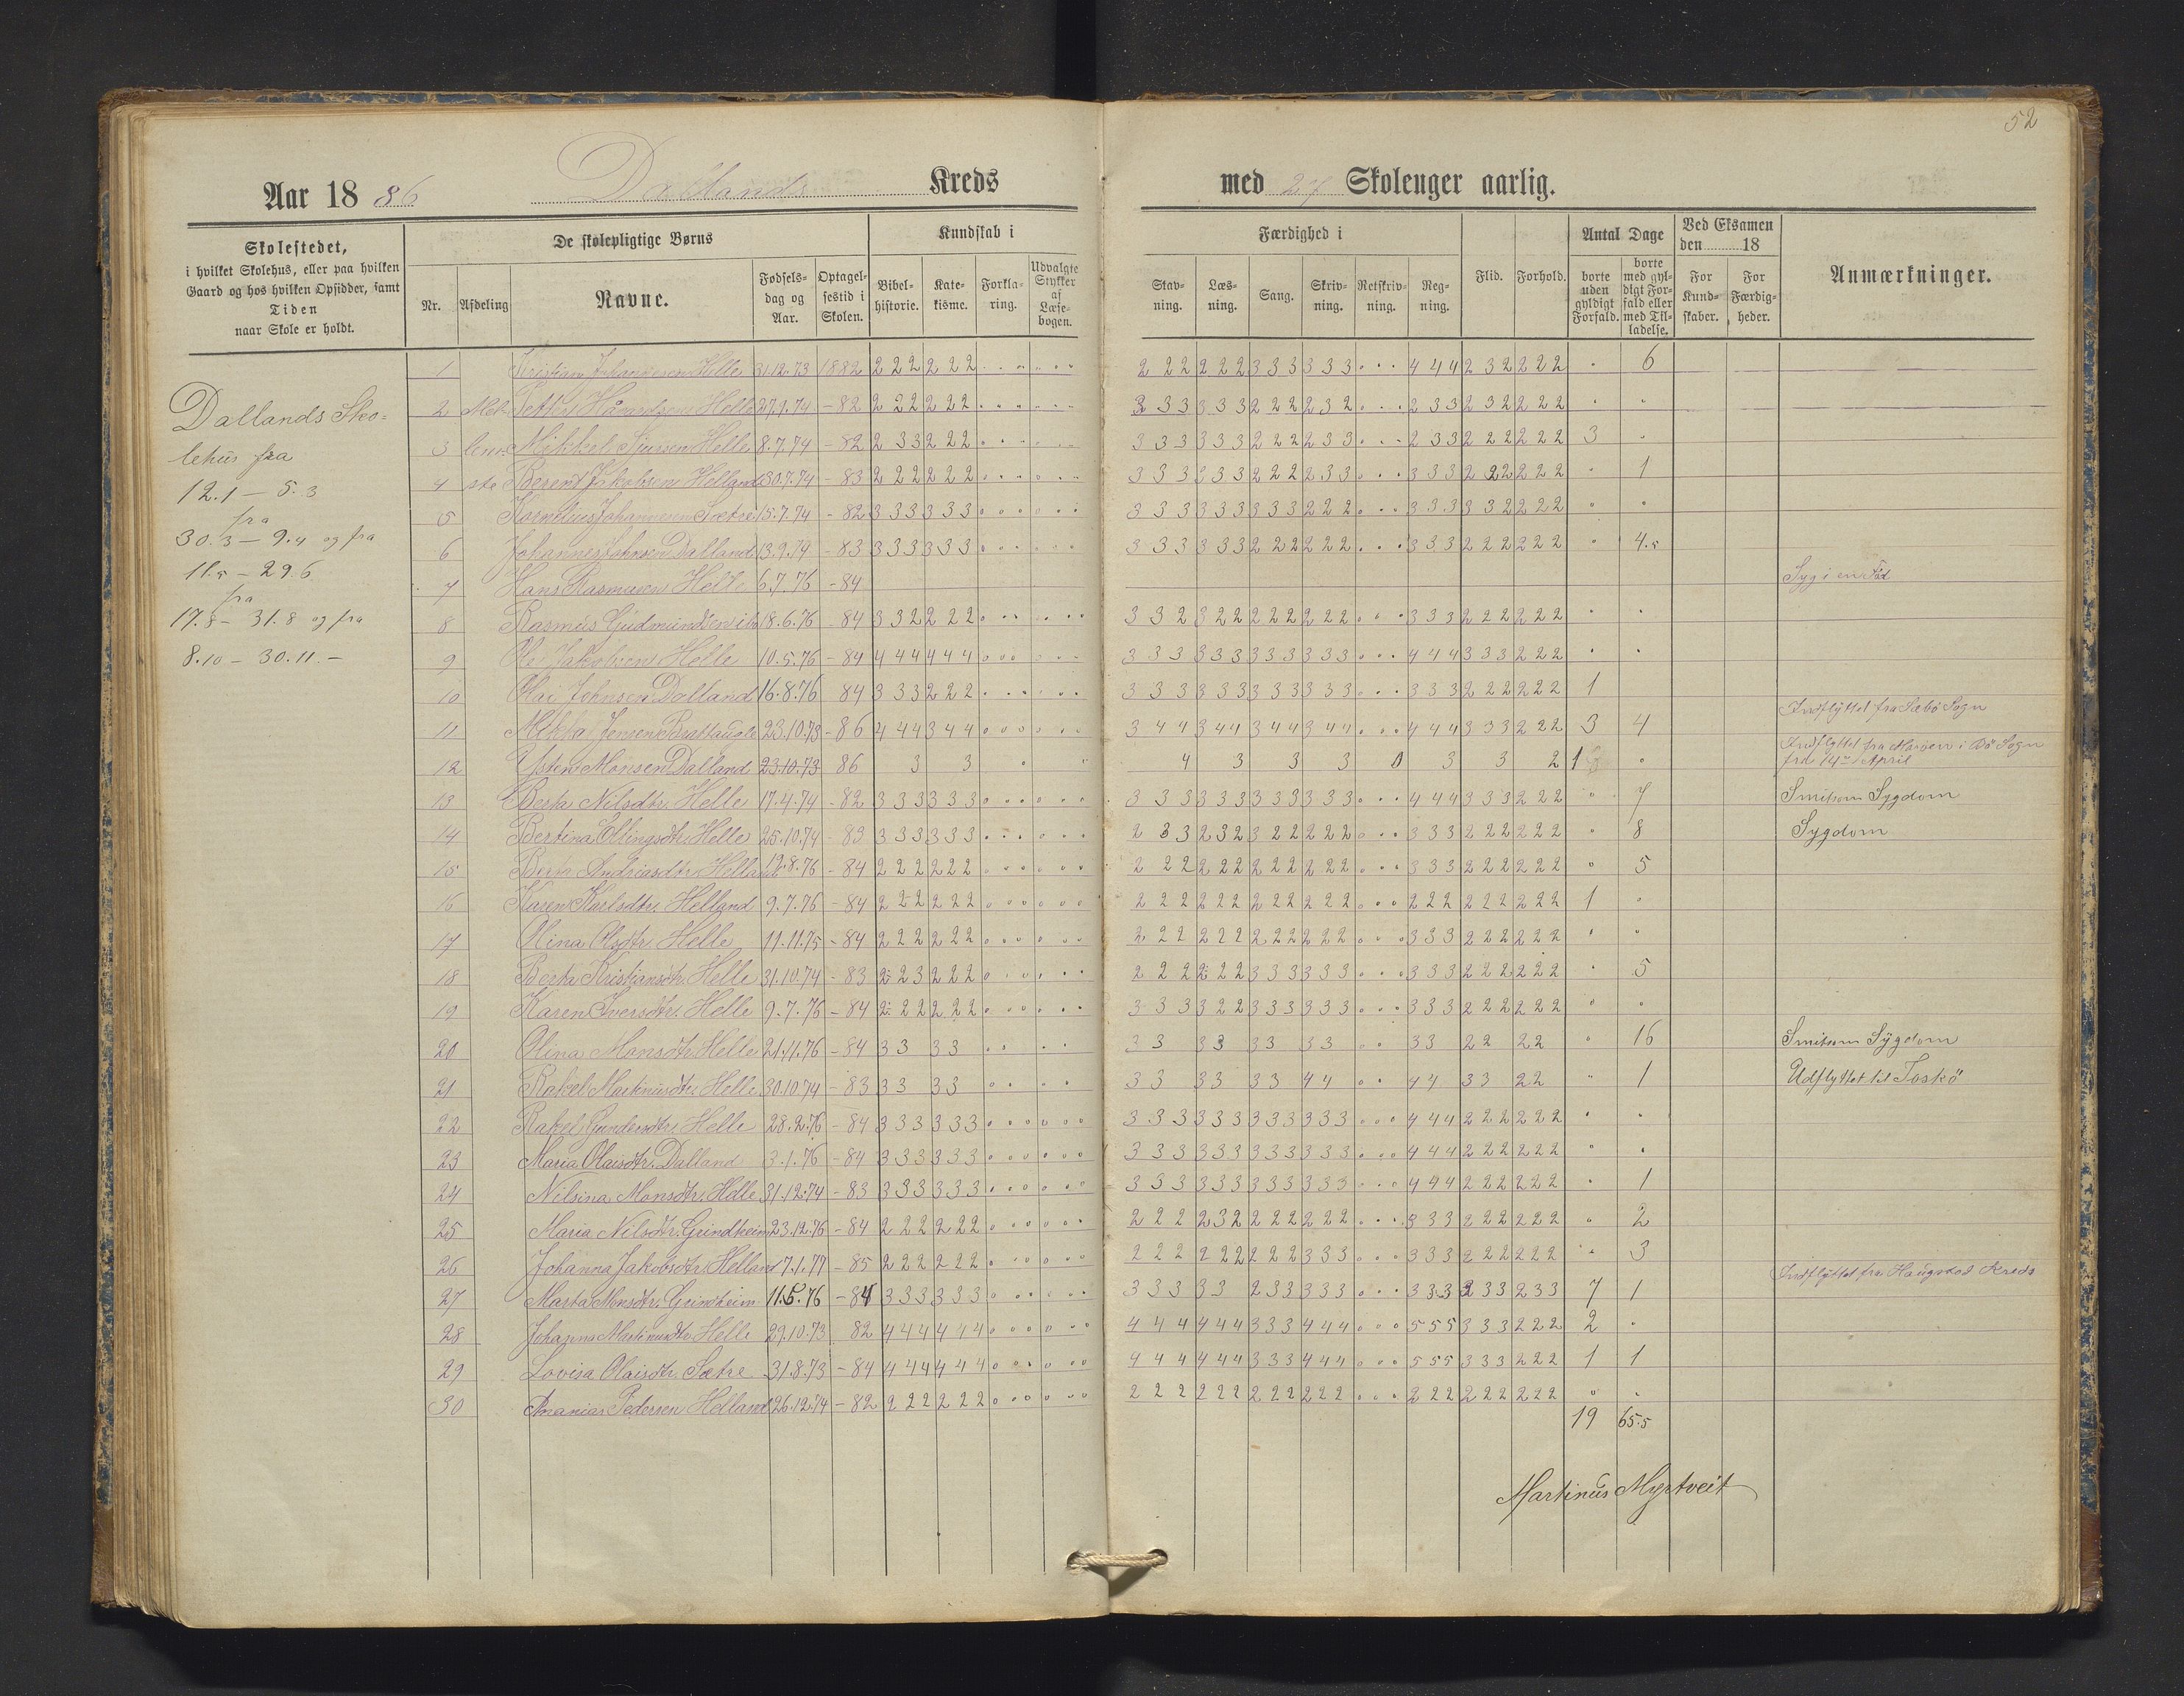 52
Aar 1886 Dallands Kreds med 27 Skoleuger aarlig.
Skolestedet,
i hvilket Skolehus, eller paa hvilken
Gaard og hos hvilken Opsidder, samt
Tiden
naar Skole er holdt.
De skolepligtige Børns
Nr. Afdeling Navne. Fødselsdag og Aar. Optagelsestid i Skolen.
Kundskab i
Bibelhistorie. Katekisme. Forklaring. Udvalgte Stykker af Læsebogen.
Færdighed i
Stavning. Læsning. Sang. Skrivning. Retskrivning. Regning.
Flid. Forhold.
Antal Dage
borte uden gyldigt Forfald. borte med gyldigt Forfald eller med Tilladelse.
Ved Eksamen
den 18
For Kundskaber. For Færdigheder.
Anmærkninger.
Dallands Sko=
lehus fra
12.1 – 5.3
fra
30.3 – 9.4 og fra
11.5 – 29.6
fra
17.8 – 31.8 og fra
8.10 – 30.11. –
1 Kristian Johannesen Helle 31.12.73 1882 222 222 222 222 333 333 444 232 222 6
2 Mel- Petter Håvardsen Helle 27.9.74 – 82 222 222 333 333 222 232 233 232 222
3 lem- Mikkel Sjursen Helle 8.7.74 – 82 233 222 333 333 222 233 233 222 222 3
4 ste Berent Jakobsen Helland 30.7.74 – 83 222 222 333 333 222 233 333 222 222 1
5 Kornelius Johannesen Sætre 15.7.74 – 82 333 333 333 333 333 222 333 332 222
6 Johannes Johnsen Dalland 13.9.74 – 83 333 333 333 333 222 222 333 222 222 4.5
7 Hans Rasmusen Helle 6.7.76 – 84 Syg i en Fod
8 Rasmus Gudmundsen ib 18.6.76 – 84 332 222 332 322 222 222 333 222 222
9 Ole Jakobsen Helle 10.5.76 – 84 444 444 333 333 333 333 444 333 222
10 Olai Johnsen Dalland 16.8.76 84 333 222 333 333 333 333 333 222 222 1
11 Mikkel Jensen 23.10.73 – 86 444 344 344 344 344 344 444 333 222 3 4 Indflyttet fra Sæbö Sogn
12 Østen Monsen Dalland 23.10.73 86 3 3 4 3 3 3 0 3 3 2 1 Indflyttet fra i Bö Sogn
fra 14de April
13 Berta Nilsdtr. Helle 17.4.74 – 82 333 333 333 333 333 333 444 333 222 7 Smitsom Sygdom
14 Bertina Ellingsdtr. Helle 25.10.74 – 83 333 333 233 232 322 222 333 222 222 8 Sygdom
15 Berta Andreasdtr. Helland 12.8.76 – 84 222 222 222 222 222 222 333 222 222 5
16 Karen Karlsdtr. Helland 9.7.76 – 84 222 222 222 222 222 222 222 222 222 1
17 Olina Olsdtr. Helle 11.11.75 – 84 222 222 222 222 222 222 333 222 222
18 Berta Kristiansdtr. Helle 31.10.74 – 83 223 222 222 222 333 333 333 222 222 5
19 Karen Iversdtr. Helle 9.7.76 – 84 222 222 333 322 333 333 333 222 222
20 Olina Monsdtr. Helle 21.11.76 – 84 33 33 33 33 33 33 33 22 22 16 Smitsom Sygdom
21 Rakel Martinusdtr. Helle 30.10.74 – 83 33 33 33 33 33 44 44 33 22 1 Udflyttet til Toskö
22 Rakel Gundersdtr. Helle 28.2.76 – 84 333 333 333 333 333 333 444 222 222
23 Maria Olaisdtr. Dalland 3.1.76 – 84 333 333 333 333 333 333 444 222 222
24 Nilsina Monsdtr. Helle 31.12.74 – 83 333 333 333 333 333 333 444 222 222 1
25 Maria Nilsdtr. Geindheim 23.12.76 – 84 222 222 222 232 222 222 333 222 222 2
26 Johanna Jakobsdtr. Helland 7.1.77 – 85 222 222 222 222 222 333 333 222 222 3
27 Marta Monsdtr. Geindheim 11.5.76 – 84 333 333 333 33 233 333 333 233 233 7 1 Indflyttet fra Haugstad Kreds
28 Johanna Martinusdtr. Helle 29.10.73 82 444 444 444 444 333 444 555 333 222 2
29 Lovisa Olaisdtr. Sætre 31.8.73 – 84 444 444 444 444 333 444 555 333 222 1 1
30 Ananias Pedersen Helland 26.12.74 – 82 222 222 222 222 222 222 222 222 222
19 65.5
Martinus Myrtveit